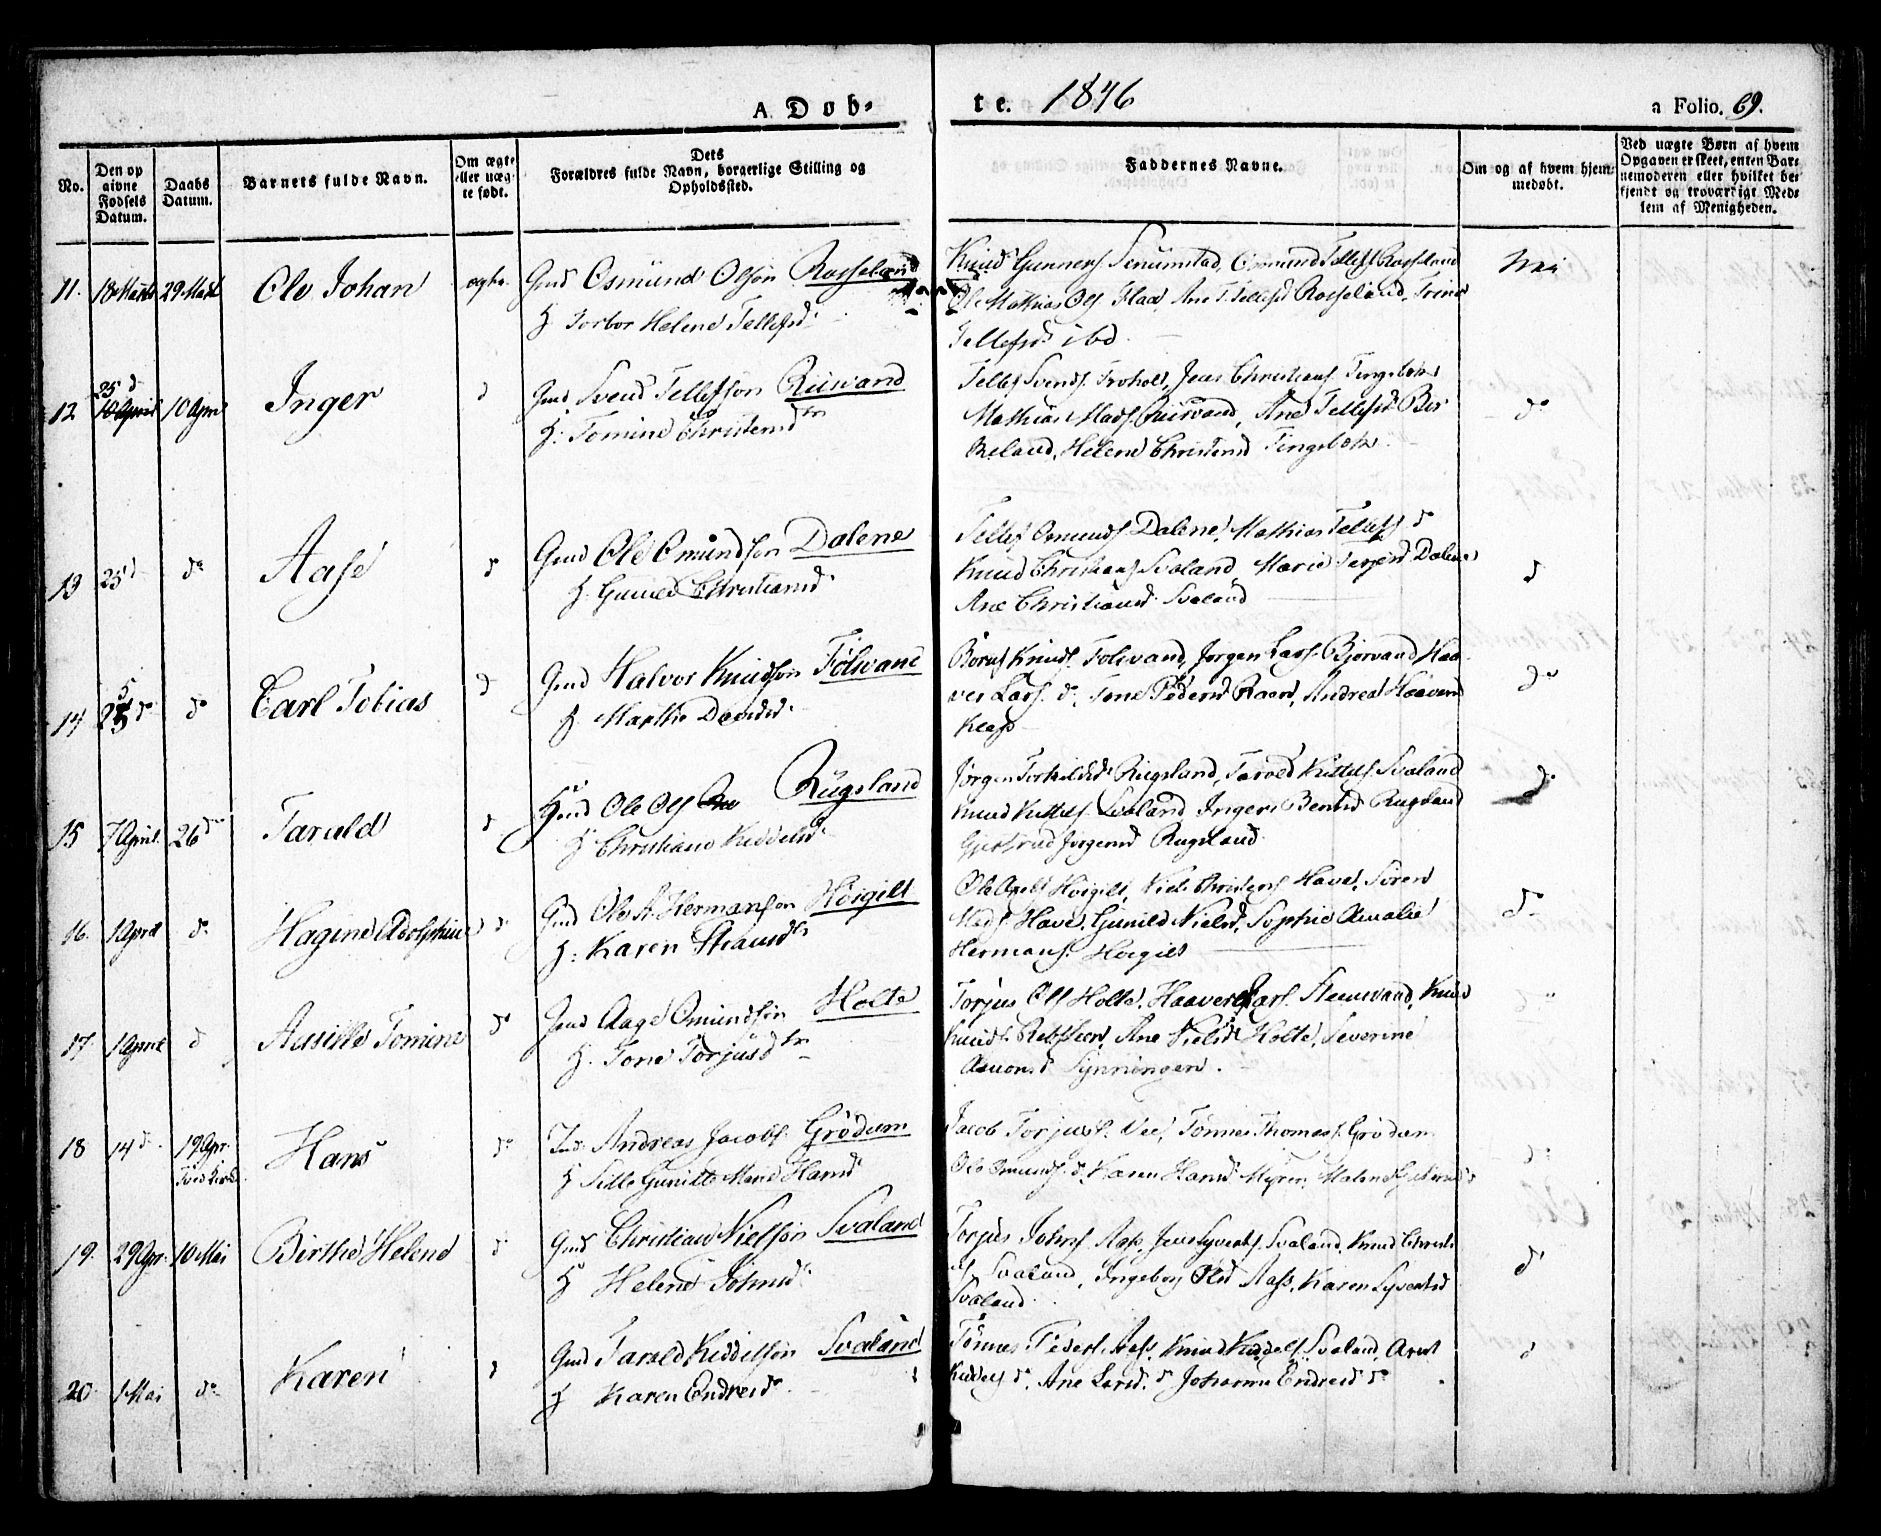 A. Døb-
te. 1846
a Folio. 69.
No.
Den op
givne
Fødsels
Datum.
Daabs
Datum.
Barnets fulde Navn.
Om ægte
eller uæg-
te født.
Dets
Forældres fulde Navn, borgerlige Stilling og
Opholdssted.
Faddernes Navne.
Om og af hvem hjem-
medøbt.
Ved uægte Børn af hvem
Opgaven er skeet, enten Bar-
nemoderen eller hvilket be-
kjendt og troværdigt Med-
lem af Menigheden.
11. 18 Marts 29 Marts Ole Johan ægte. Gmd Osmund Olsøn Rosseland
H Torbor Helene Tellefsd
Knud Gunners. Senumstad, Osmund Tellefs. Rosseland
Ole Mathias Ols Flaa, Ane T. Tellefsd Rosseland, Trine
Tellefsd ibd.
Nei
12 25 d 10 April Inger d Gmd Svend Tellefsøn Riisvand
H: Tomine Christensdtr
Tellef Svends. Froholt, Jens Christians. Tingsbek
Mathias Mads. Riisvand, Ane Tellefsd Bir
keland, Helene Christensd Tingsbek
do
13 25 d do Aase d Gmd Ole Omundsøn Dalene
H. Gunild Christiansd
Tellef Omunds. Dalene, Mathias Tellefs. d
Knud Christians Svaland, Marie Terjesd Dalene
Ane Christiansd Svaland
d
14 25 do do Carl Tobias d Gmd Halvor Knudsøn Følvand
H Marthe Davidsd
Knuds. Følvand, Jørgen Lars. Bjorvand Haa
ver Lars. do. Tone Pedersd Andrea Haaversd
do
15 7 April 26 do Tarald d Gmd Ole Ols Rugsland
H Christiane Kiddelsd
Jørgen Torkilds. Rugsland, Tarald Kittels. Svaland
Knud Kittels. Svaland Inger Berntsd Rugsland
Gjertrud Jørgensd Rugsland
do
16. 1 April do Hagine Adolphine d Gmd Ole A. Hermansøn Høigilt
H: Karen
Ole Høigilt, Niels Christens Have, Søren
Mads. Have, Gunild Nielsd, Sophie Amalie
Hermans. Høigilt
do
17. 1 April d Aasille Tomine do Gmd Aage Omundsøn Holte
H. Tone Torjusdtr
Torjus Ols Holte, Haaver Lars. Knud
Knuds. Ane Nielsd Holte, Severine
Synningen.
18 14 d. 19 Apr. Hans do Ind. Andreas Jacobs. Grødum
H Sille Gunille Marie Hansd
Jacob Torjus. Vee, Tønnes Thomas. Grødum
Ole Omunds. d. Karen Hansd Myren, Malene
d.
19. 29 Apr. 10 Mai Birthe Helene d Gmd Christian Nielsøn Svaland
H Helene Johnsd
Torjus Johns. Aas, Jens Syverts. Svaland, Knud Christi
Svaland, Ingeborg Olsd Aas, Karen Syvertsd
Svaland
d
20. 1 Mai do Karen d Gmd Tarald Kiddelsøn Svaland
H Karen Endresd
Tønnes Peders. Aas, Knud Kiddels. Svaland, Arnt
Kiddels d. Ane Larsd. d Johanne Endresd do
d